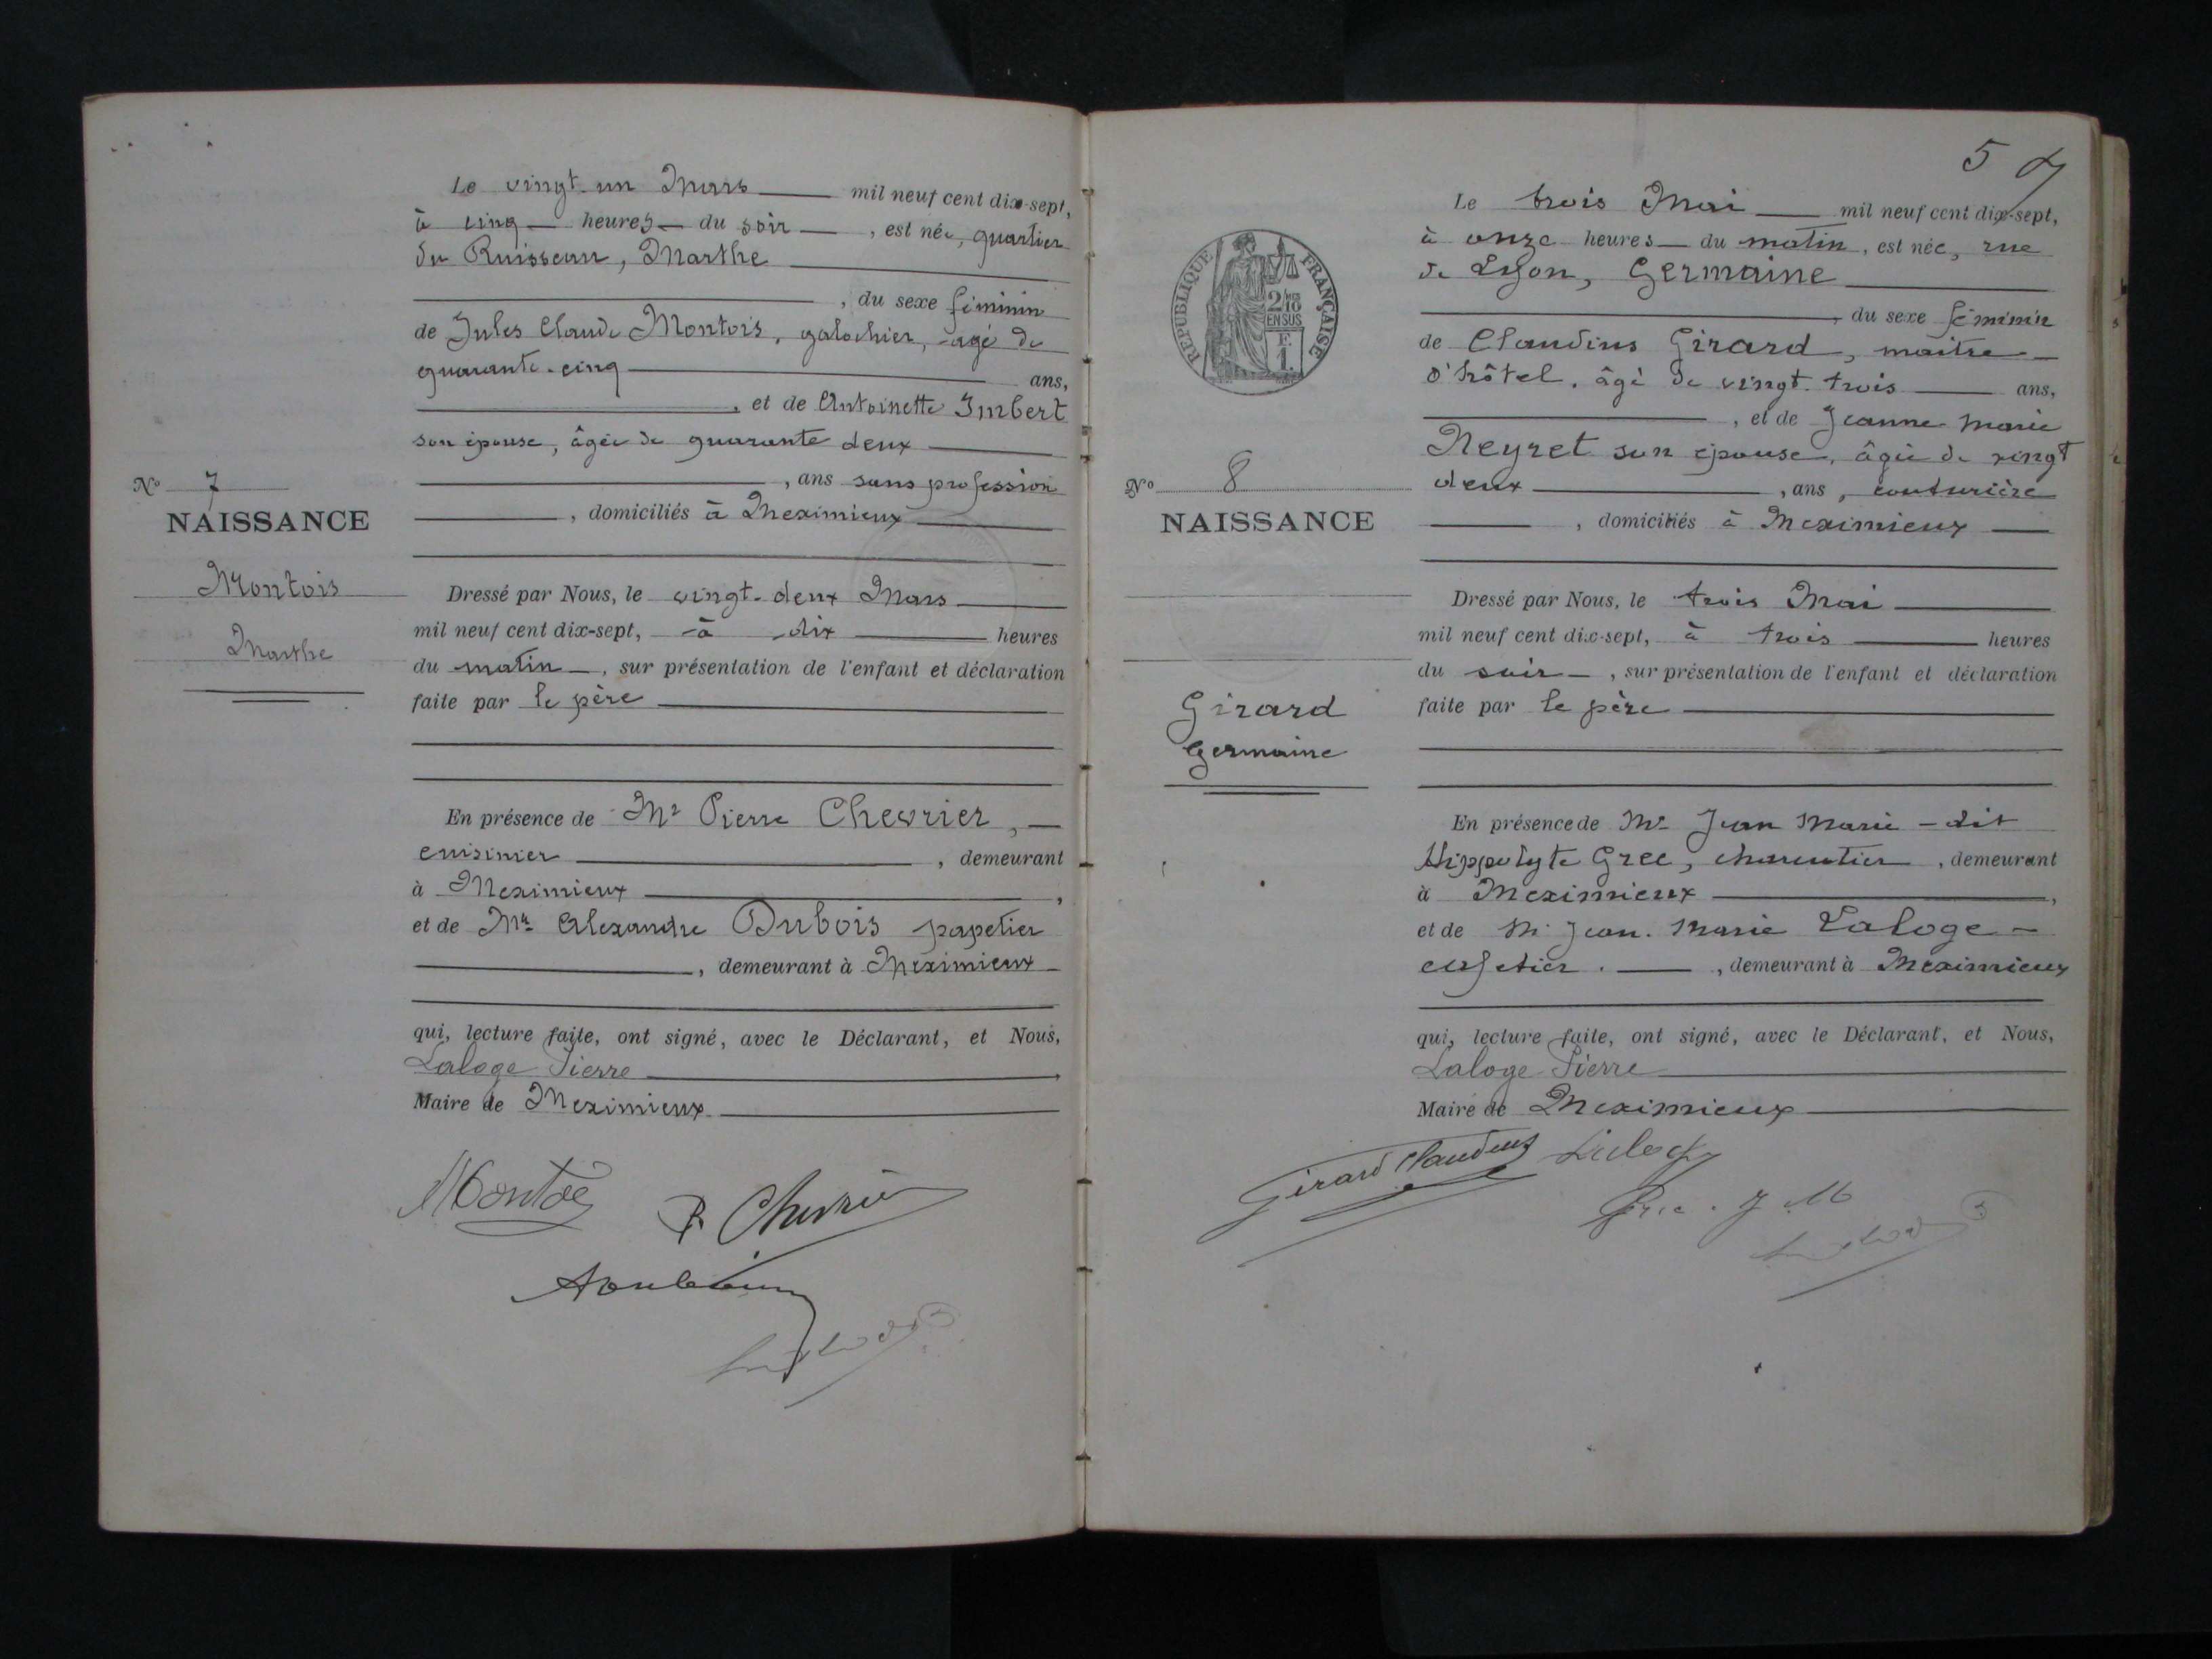 Le vingt-un Mars mil neuf cent dix-sept,
à cinq heures du soir, est née, quartier
du Ruisseau, Marthe
, du sexe féminin
de Jules Claude Montois, galochier, âgé de
quarante-cinq ans,
, et de Antoinette Imbert
son épouse, âgée de quarante deux
, ans sans profession
, domiciliés à Meximieux
No 7
NAISSANCE
Montois
Marthe
Dressé par Nous, le vingt-deux Mars
mil neuf cent dix-sept, à dix heures
du matin, sur présentation de l'enfant et déclaration
faite par le père
En présence de Mr Pierre Chevrier,
cuisinier, demeurant
à Meximieux,
et de Mr Alexandre Dubois papetier
, demeurant à Meximieux
qui, lecture faite, ont signé, avec le Déclarant, et Nous,
Laloge Pierre
Maire de Meximieux
Montois
P. Chevrier
5
Le trois Mai mil neuf cent dix-sept,
à onze heures du matin, est née, rue
de Lyon, Germaine
, du sexe féminin
de Claudius Girard, maître
d'hôtel, âgé de vingt-trois ans,
, et de Jeanne Marie
Neyret son épouse, âgée de vingt
deux, ans, couturière
, domiciliés à Meximieux
RÉPUBLIQUE FRANÇAISE
2/10
EN SUS
F.
1.
No 8
NAISSANCE
Girard
Germaine
Dressé par Nous, le trois Mai
mil neuf cent dix-sept, à trois heures
du soir, sur présentation de l'enfant et déclaration
faite par le père
En présence de Mr Jean Marie - dit
Hippolyte Grec, charcutier, demeurant
à Meximieux,
et de M. Jean. Marie Laloge -
cafetier., demeurant à Meximieux
qui, lecture faite, ont signé, avec le Déclarant, et Nous,
Laloge Pierre
Maire de Meximieux
Girard Claudius Laloge
Grec. J M